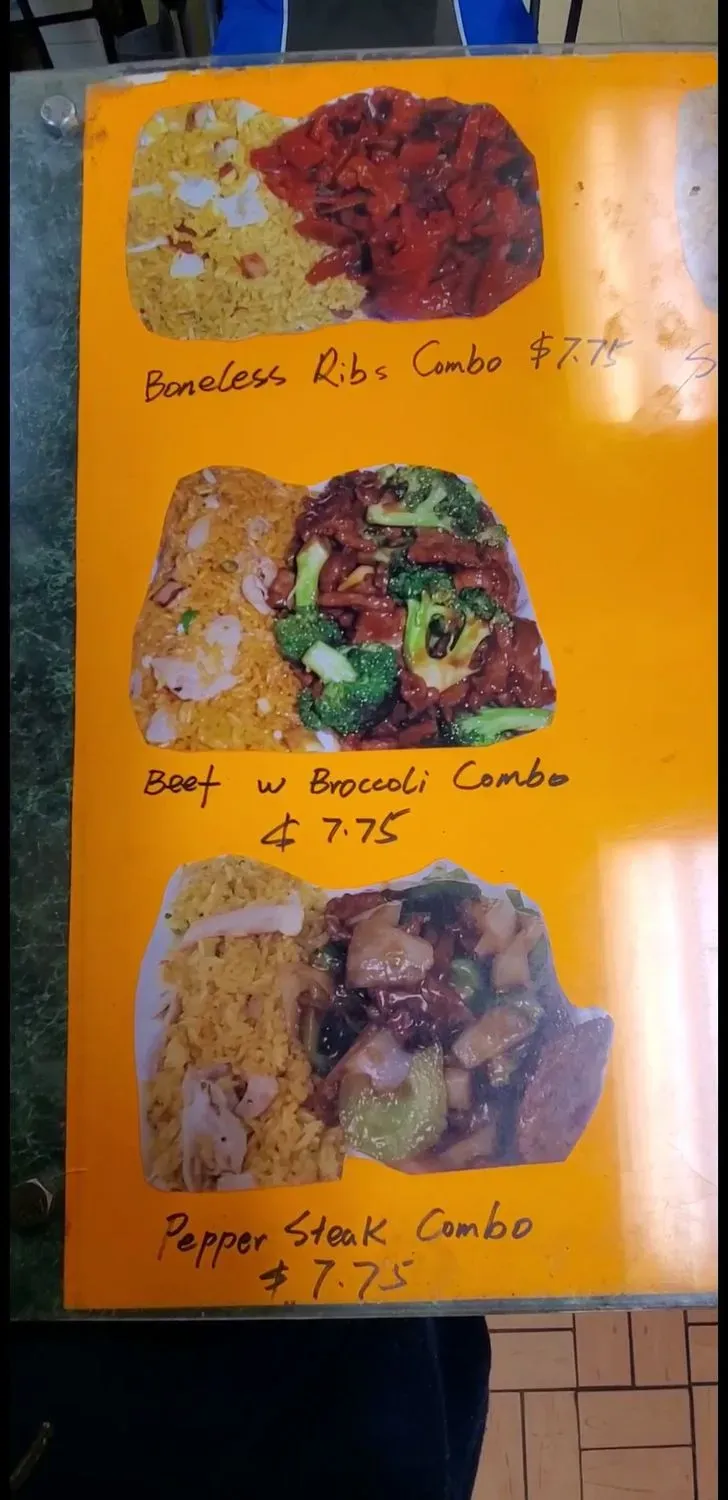 Boneless Ribs Combo $7.75
S
Beef w Broccoli Combo
$ 7.75
Pepper Steak Combo
$ 7.75